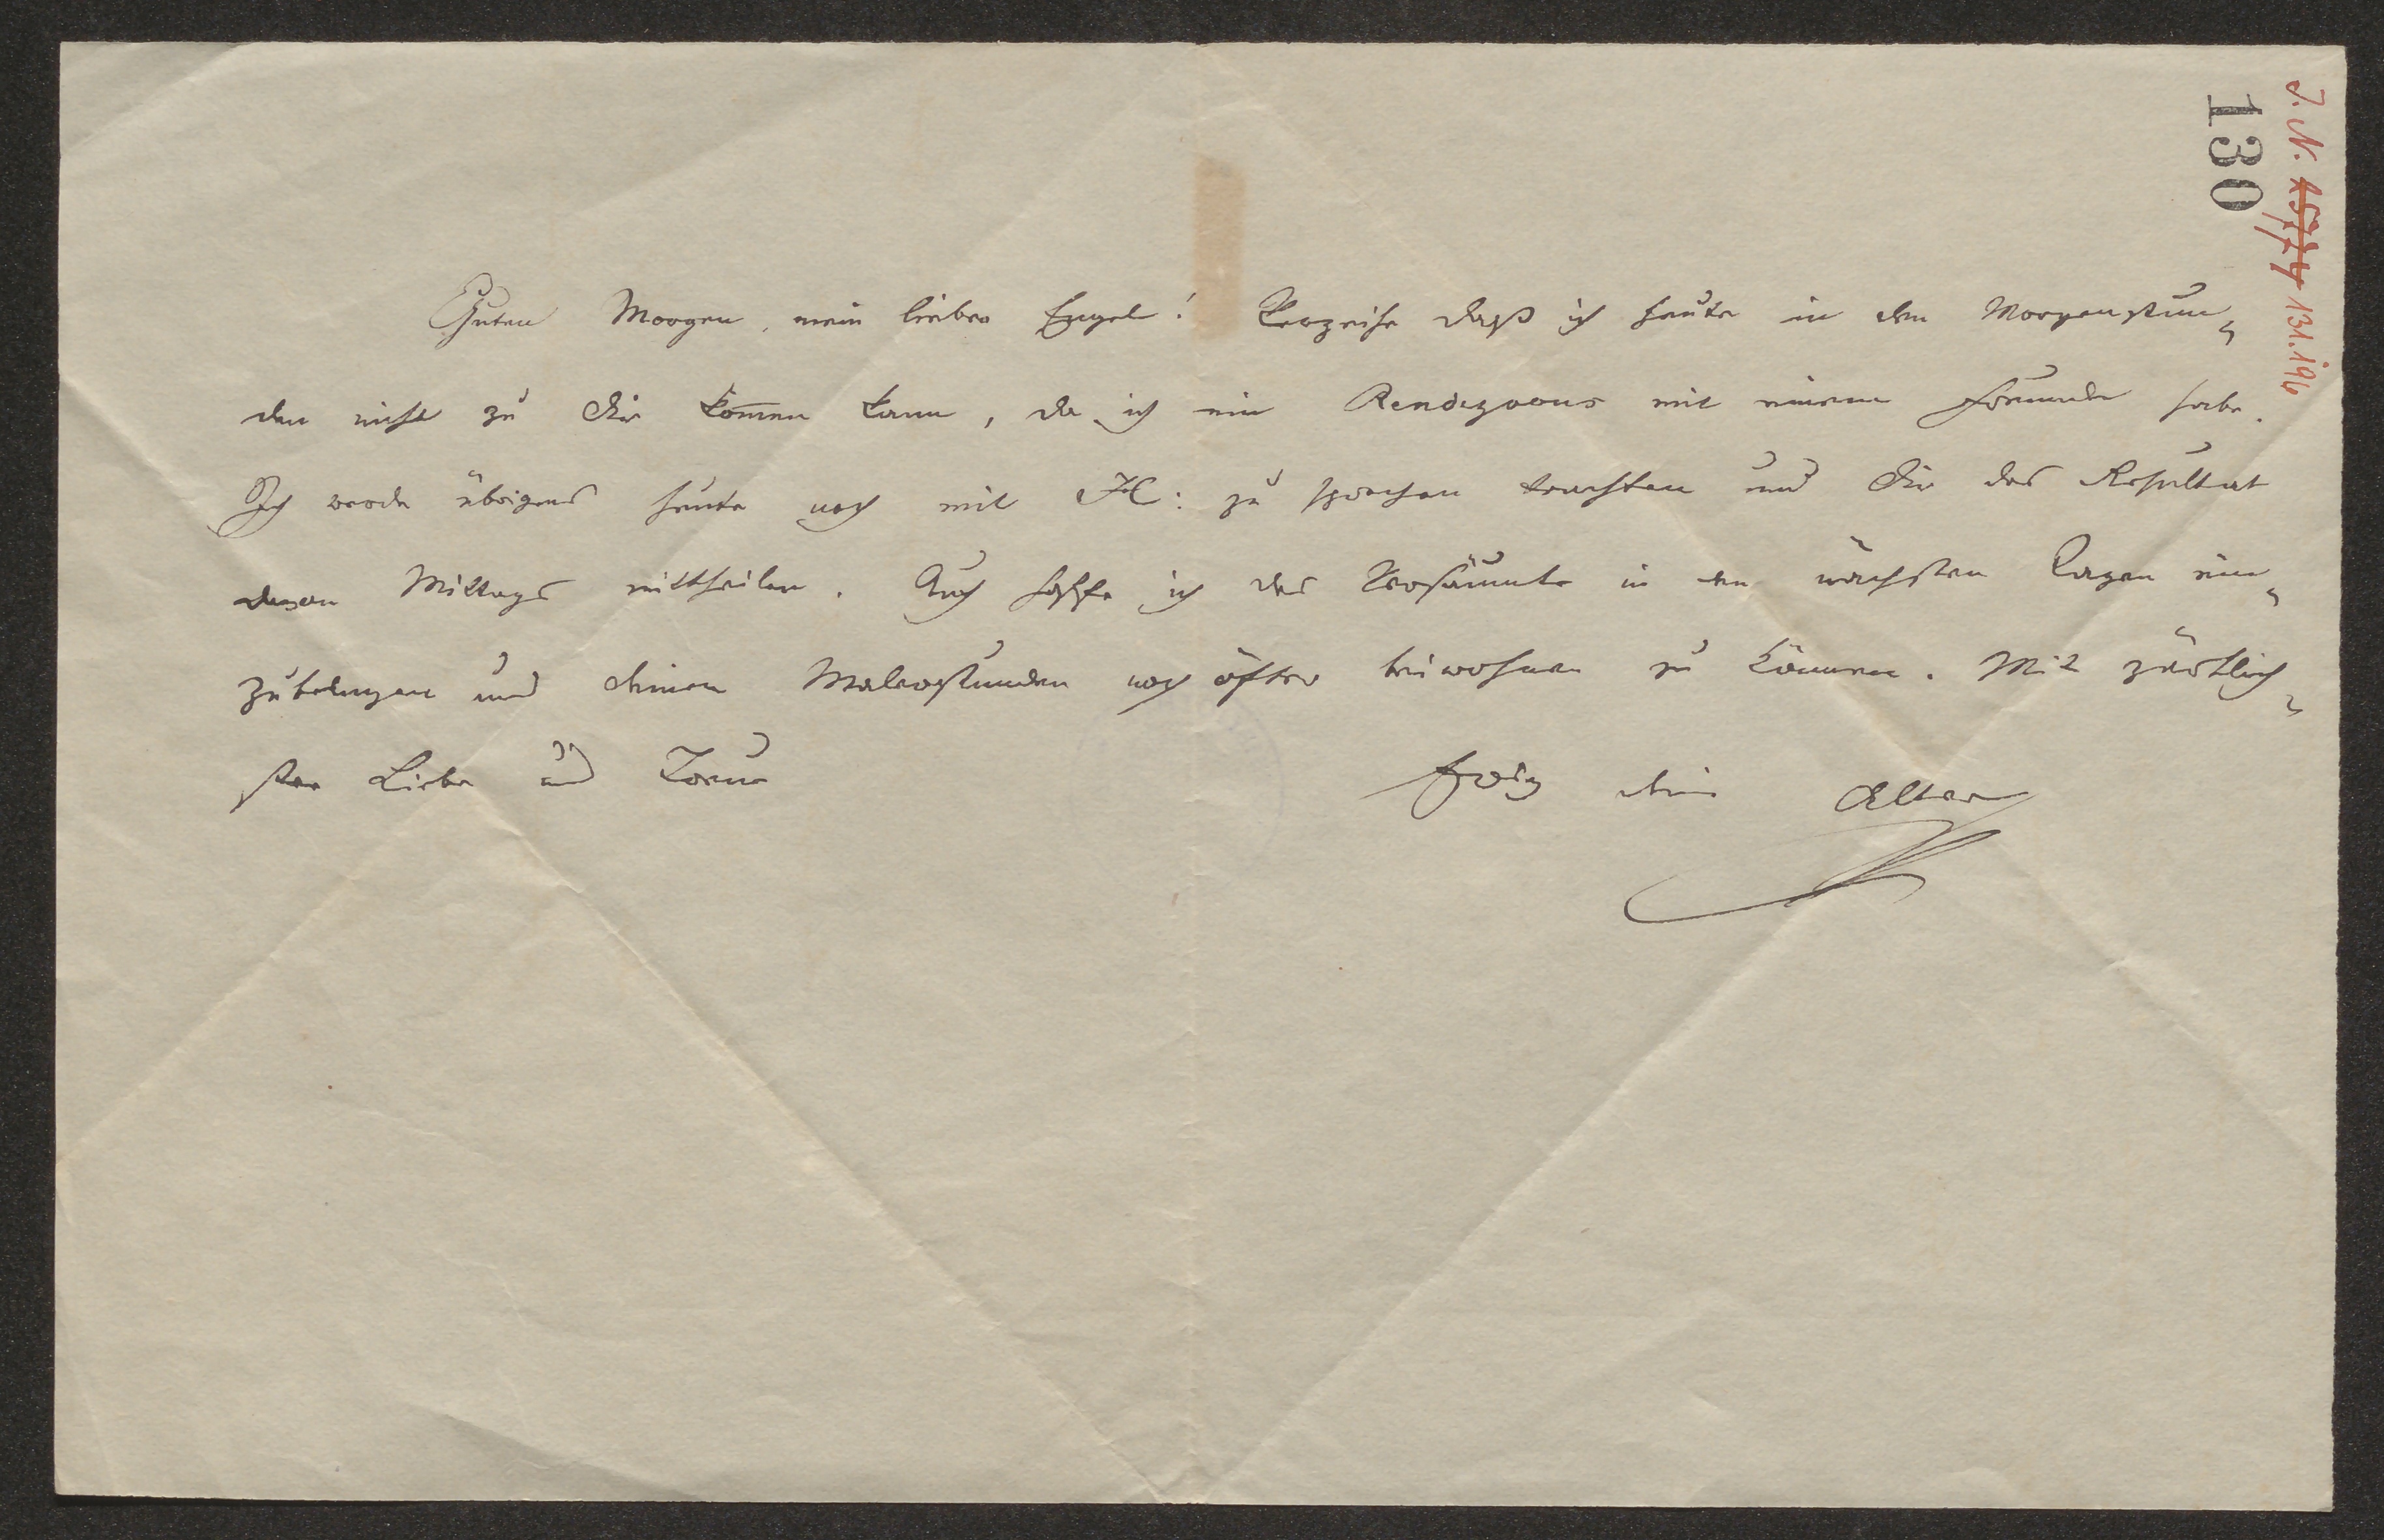 130
J. N. 15774 131.196
Guten Morgen, mein lieber Engel! Verzeihe daß ich heute in den Morgenstun-
den nicht zu Dir kom̅en kann, da ich ein Rendezvous mit einem Freunde habe.
Ich werde übrigens heute noch mit H: zu sprechen trachten und Dir das Resultat
dessen Mittags mittheilen. Auch hoffe ich das Versäumte in den nächsten Tagen ein-
zubringen und deinen Malerstunden noch öfter beiwohnen zu können. Mit zärtlich-
ster Liebe und Treue
Ewig dein Alter